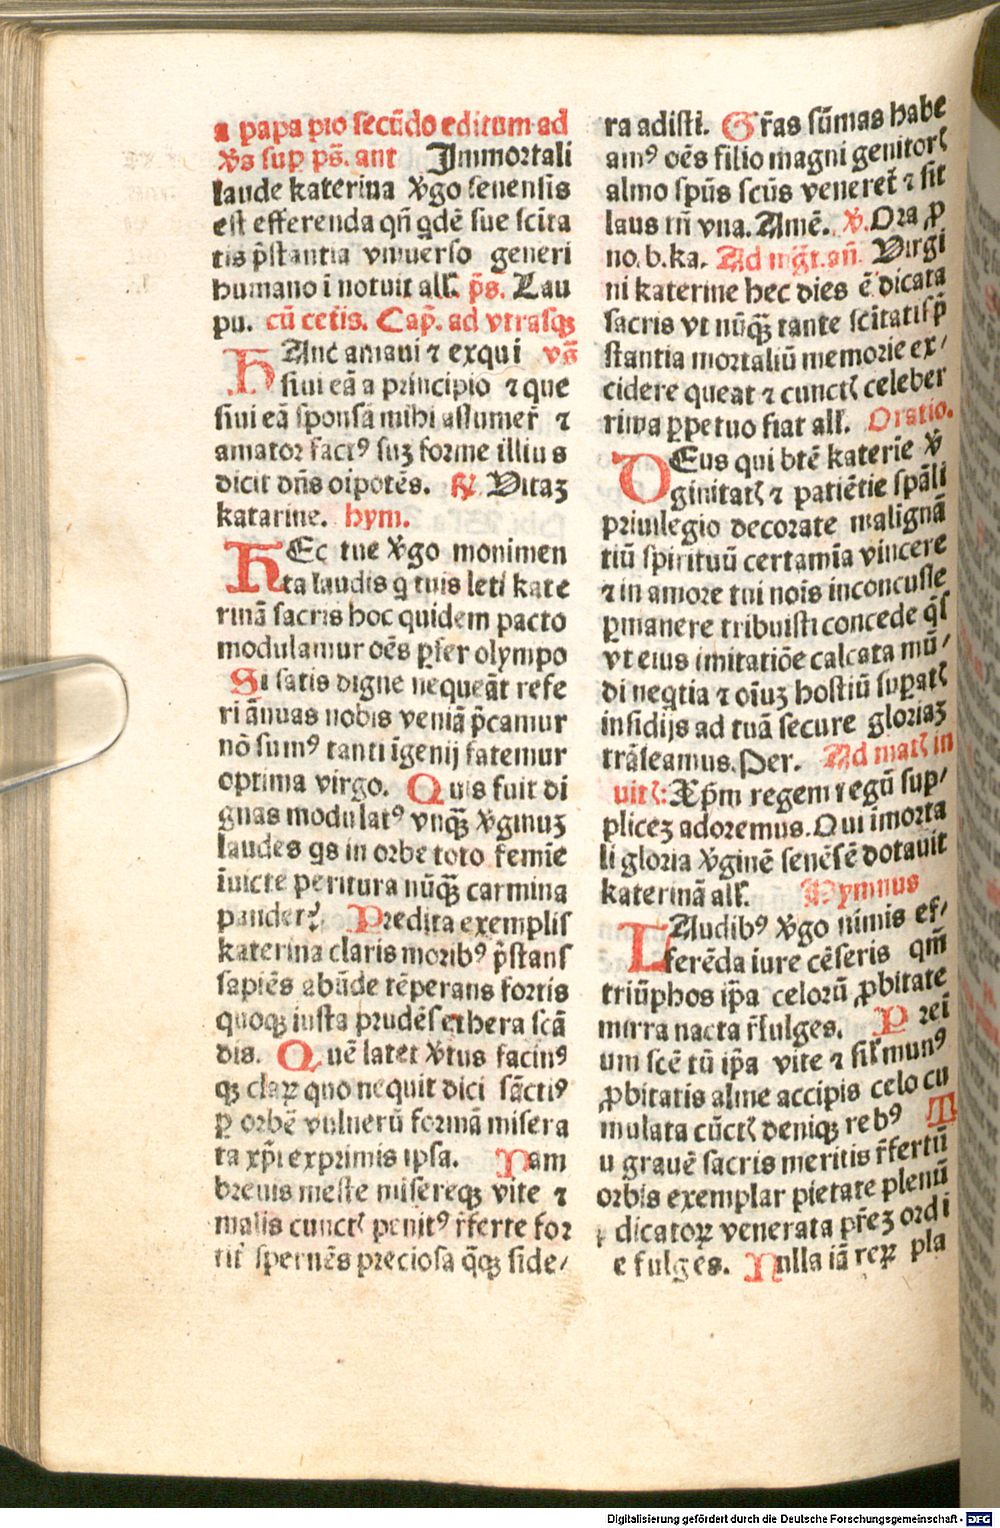 a papa pio secūdo editum ad
v̄s sup ps̄. ant Immortali
laude katerina v̄go senensis
est efferenda qn̄ qdē sue scīta
tis p̄stantia vniuerso generi
humano ī notuit all'. ps̄. Lau
pu. cū cet̄is. Cap̄. ad vtrasqꝫ
HAnc amaui ⁊ exqui vs̄
siui eā a principio ⁊ que
siui eā sponsā mihi assumer̄ ⁊
amator factꝰ suꝫ forme illius
dicit dn̄s oīpotēs. ℟ Vitaꝫ
katarine. hym.
HEc tue v̄go monimen
ta laudis q tuis leti kate
rinā sacris hoc quidem pacto
modulamur oēs ꝑfer olympo
Si satis digne nequeāt refe
ri ānuas nobis veniā p̄camur
nō sumꝰ tanti īgenij fatemur
optima virgo. Quis fuit di
gnas modulatꝰ vnqꝫ v̄ginuꝫ
laudes qs in orbe toto femīe
īuicte peritura nūqꝫ carmina
pander̄? Predita exemplis
katerina claris moribꝰ p̄stans
sapiēs abūde tēperans fortis
quoqꝫ iusta prudēs ethera scā
dis. Quē latet v̄tus facinꝰ
qꝫ claꝝ quo nequit dici sāctiꝰ
ꝑ orbē vulnerū formā misera
ta xp̄i exprimis ipsa. Nam
breuis meste misereqꝫ vite ⁊
malis cunctꝭ penitꝰ r̄ferte for
tit̄ spernēs preciosa q̄qꝫ side/
ra adisti. Gr̄as sūmas habe
amꝰ oēs filio magni genitorꝭ
almo spūs scūs veneret̄ ⁊ sit
laus tn̄ vna. Amē. v̄. Ora ꝓ
no. b. ka. Ad mḡt. an̄. Virgi
ni katerine hec dies ē dicata
sacris vt nūqꝫ tante scītatis p̄
stantia mortaliū memorie ex/
cidere queat ⁊ cunctꝭ celeber
rima ꝑpetuo fiat all'. Oratio.
DEus qui btē katerīe v̄
ginitatꝭ ⁊ patiētie spāli
priuilegio decorate malignā
tiū spirituū certamīa vincere
⁊ in amore tui nois inconcusse
ꝑmanere tribuisti concede q̄s
vt eius imitatiōe calcata mū/
di neqtia ⁊ oīuꝫ hostiū suꝑatꝭ
insidijs ad tuā secure gloriaꝫ
trāseamus. Per. Ad matꝭ in
uitꝭ: Xp̄m regem regū sup/
pliceꝫ adoremus. Qui īmorta
li gloria v̄ginē senēsē dotauit
katerinā all'. Hymnus
LAudibꝰ v̄go nimis ef/
ferēda iure cēseris qm̄
triūphos ip̄a celorū ꝓbitate
mirra nacta r̄fulges. Prei
um scē tū ip̄a vite ⁊ sil' munꝰ
ꝓbitatis alme accipis celo cu
mulata cūctꝭ deniqꝫ rebꝰ Tu
grauē sacris meritis r̄fertū
orbis exemplar pietate plenū
dicatoꝝ venerata pr̄eꝫ ordi
e fulges. Nulla iā reꝝ pla
Digitalisierung gefördert durch die Deutsche Forschungsgemeinschaft - DFG